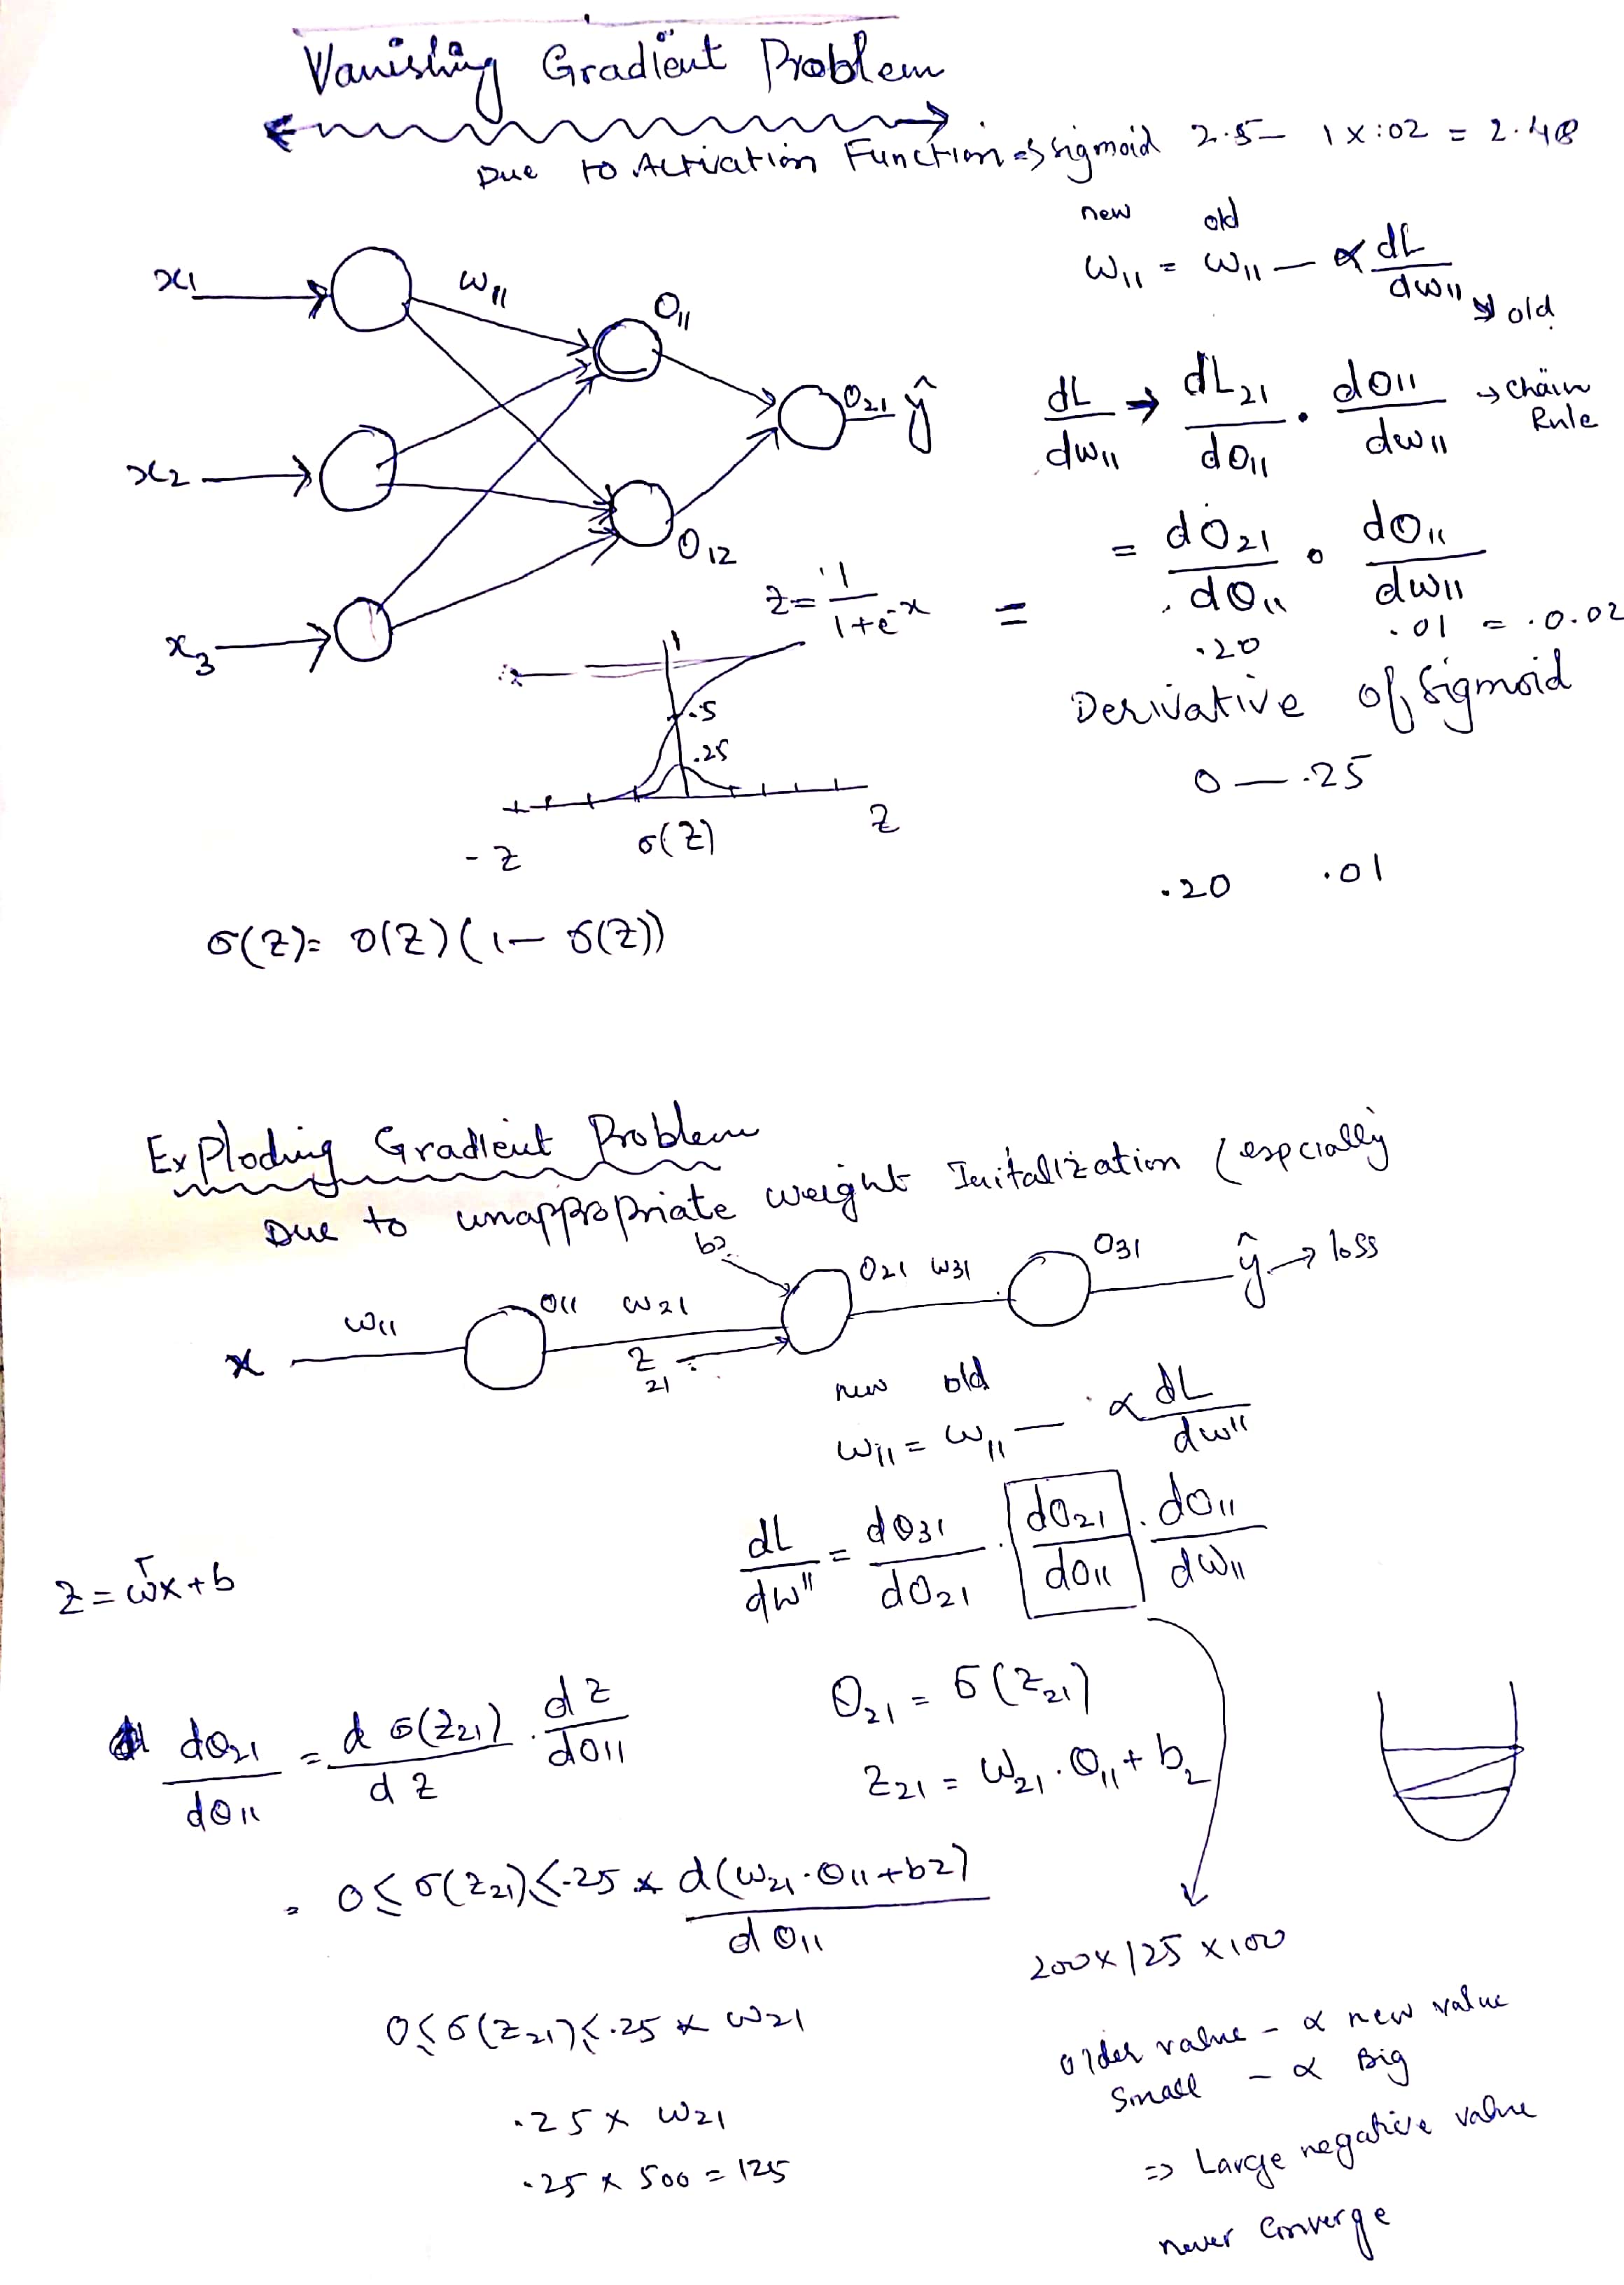 Vanishing Gradient Problem
Due to Activation Function => sigmoid 2.5 - 1 x .02 = 2.48
new old
w11 = w11 - α dL/dw11 → old
x1 w11 O11
x2 O21 ŷ
dL/dw11 → dL21/dO11 . dO11/dw11 → Chain Rule
O12
x3
= dO21/dO11 . dO11/dw11
z = 1/(1+e^-x) =
.20 .01 = .0.02
Derivative of Sigmoid
1
.5
.25
0 — .25
-z σ(z) z
.20 .01
σ(z) = σ(z)(1 - σ(z))
Exploding Gradient Problem
Due to unappropriate weight Initalization (espcially
b2
x w11 O11 w21 O21 w31 O31 ŷ → loss
z21
new old
w11 = w11 - α dL/dw11
dL/dw11 = dO31/dO21 . dO21/dO11 . dO11/dw11
z = w^T x + b
O21 = σ(z21)
dO21/dO11 = d σ(z21)/dz . dz/dO11
z21 = w21 . O11 + b2
= 0 ≤ σ(z21) ≤ .25 x d(w21 . O11 + b2)/dO11
200 x 125 x 100
0 ≤ σ(z21) ≤ .25 x w21
older value - α new value
small - α Big
.25 x w21
=> Large negative value
.25 x 500 = 125
never Converge